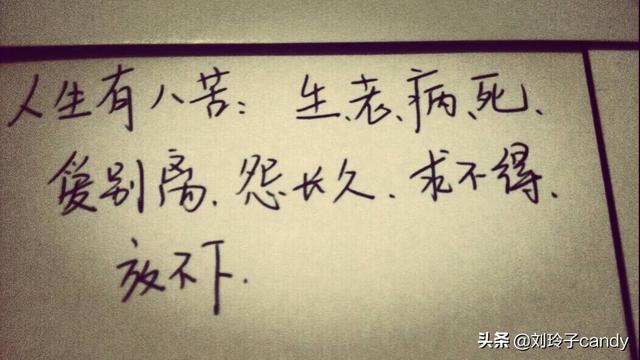 人生有八苦：生、老、病、死、
爱别离、怨长久、求不得、
放不下.
头条 @刘玲子candy